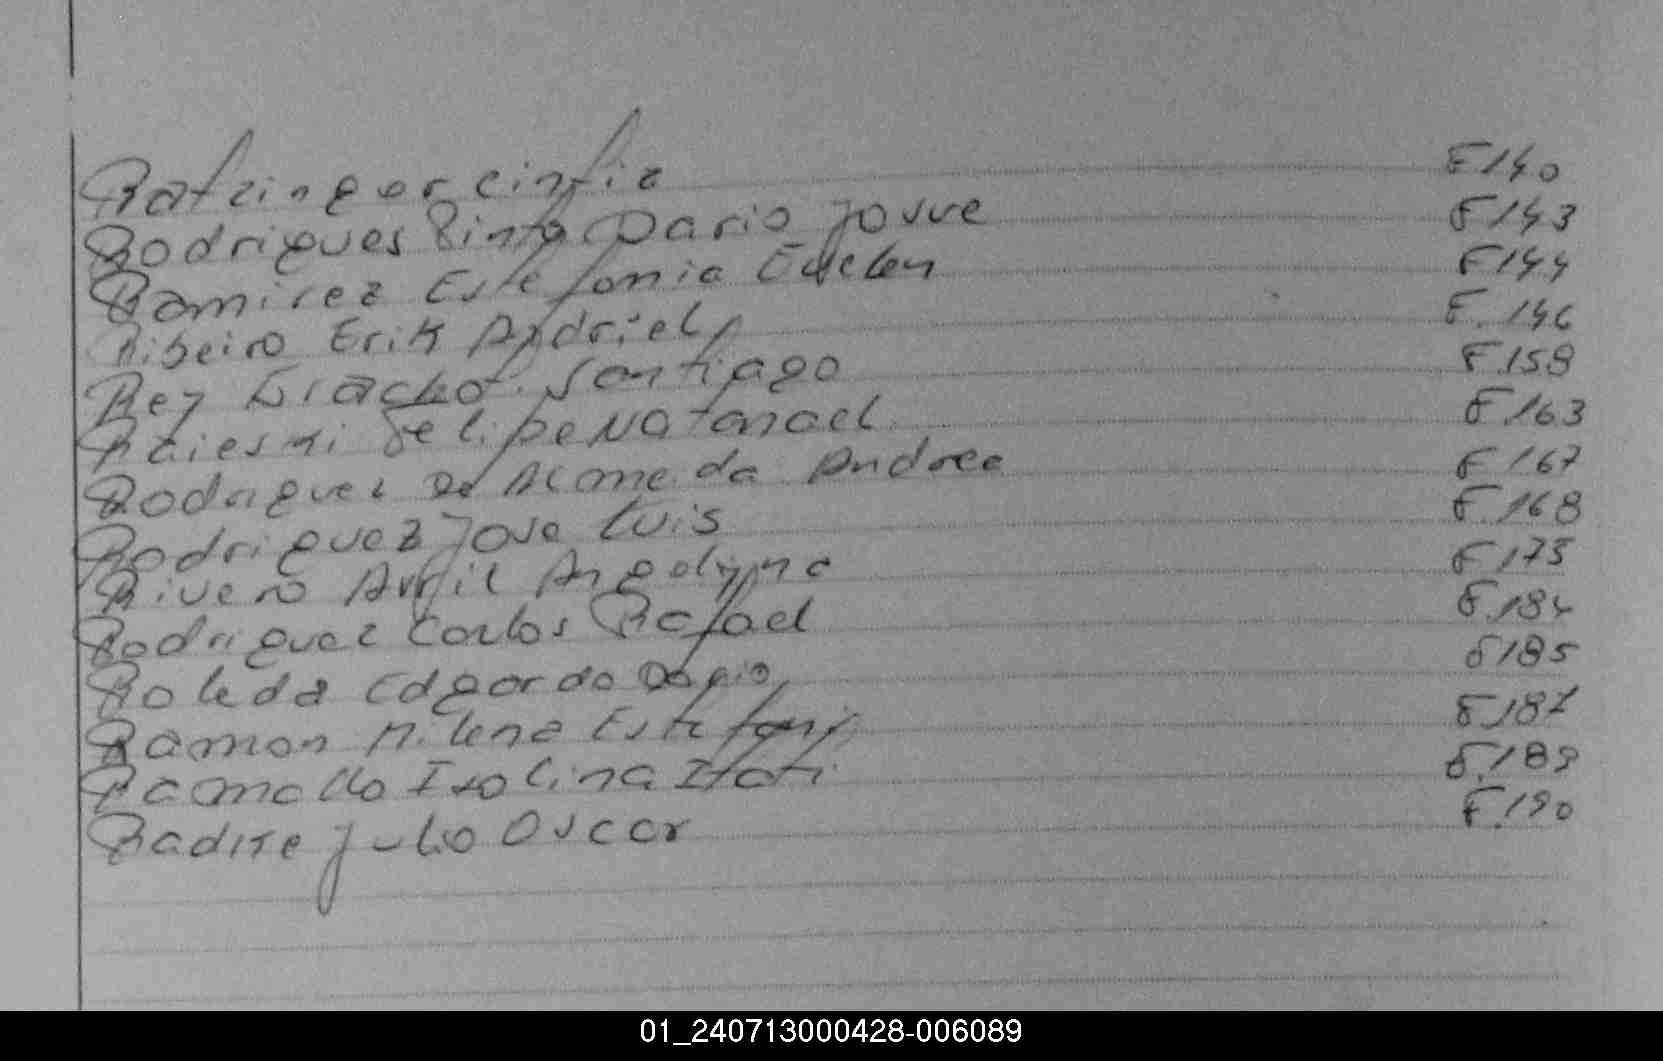 Ratzinger Cintia F.140
Rodrigues Pinto Dario Josue F.143
Ramirez Estefania Evelen F.144
Ribeiro Erik Andriel F.146
Rey Santiago F.158
Felipe Natanael F.163
Rodriguez De Almeida Andrea F.167
Rodriguez Jose Luis F.168
Rivero Avril Angelyna F.175
Rodriguez Carlos Rafael F.184
Roleda Edgardo Dario F.185
Ramon Milena Estefani F.187
Ramallo Isolina Itati F.189
Radise Julio Oscar F.190
01_240713000428-006089